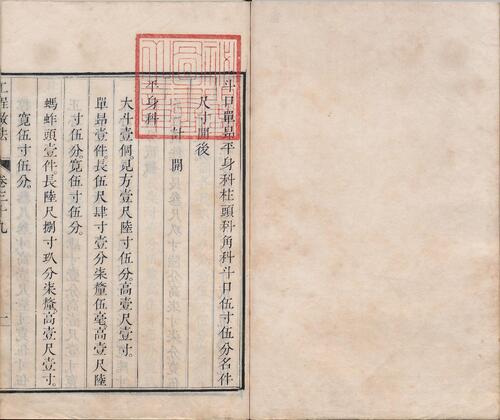 斗口單昂平身科柱頭科角科斗口伍寸伍分名件
尺寸開後
計開
平身科
大斗壹個見方壹尺陸寸伍分高壹尺壹寸
單昂壹件長伍尺肆寸壹分柒釐伍毫高壹尺陸
寸伍分寬伍寸伍分
螞蚱頭壹件長陸尺捌寸玖分柒釐高壹尺壹寸
寬伍寸伍分
工程做法
卷三十九
一